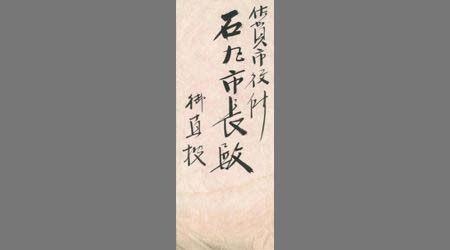 佐賀市役所
石丸市長殿
御直披